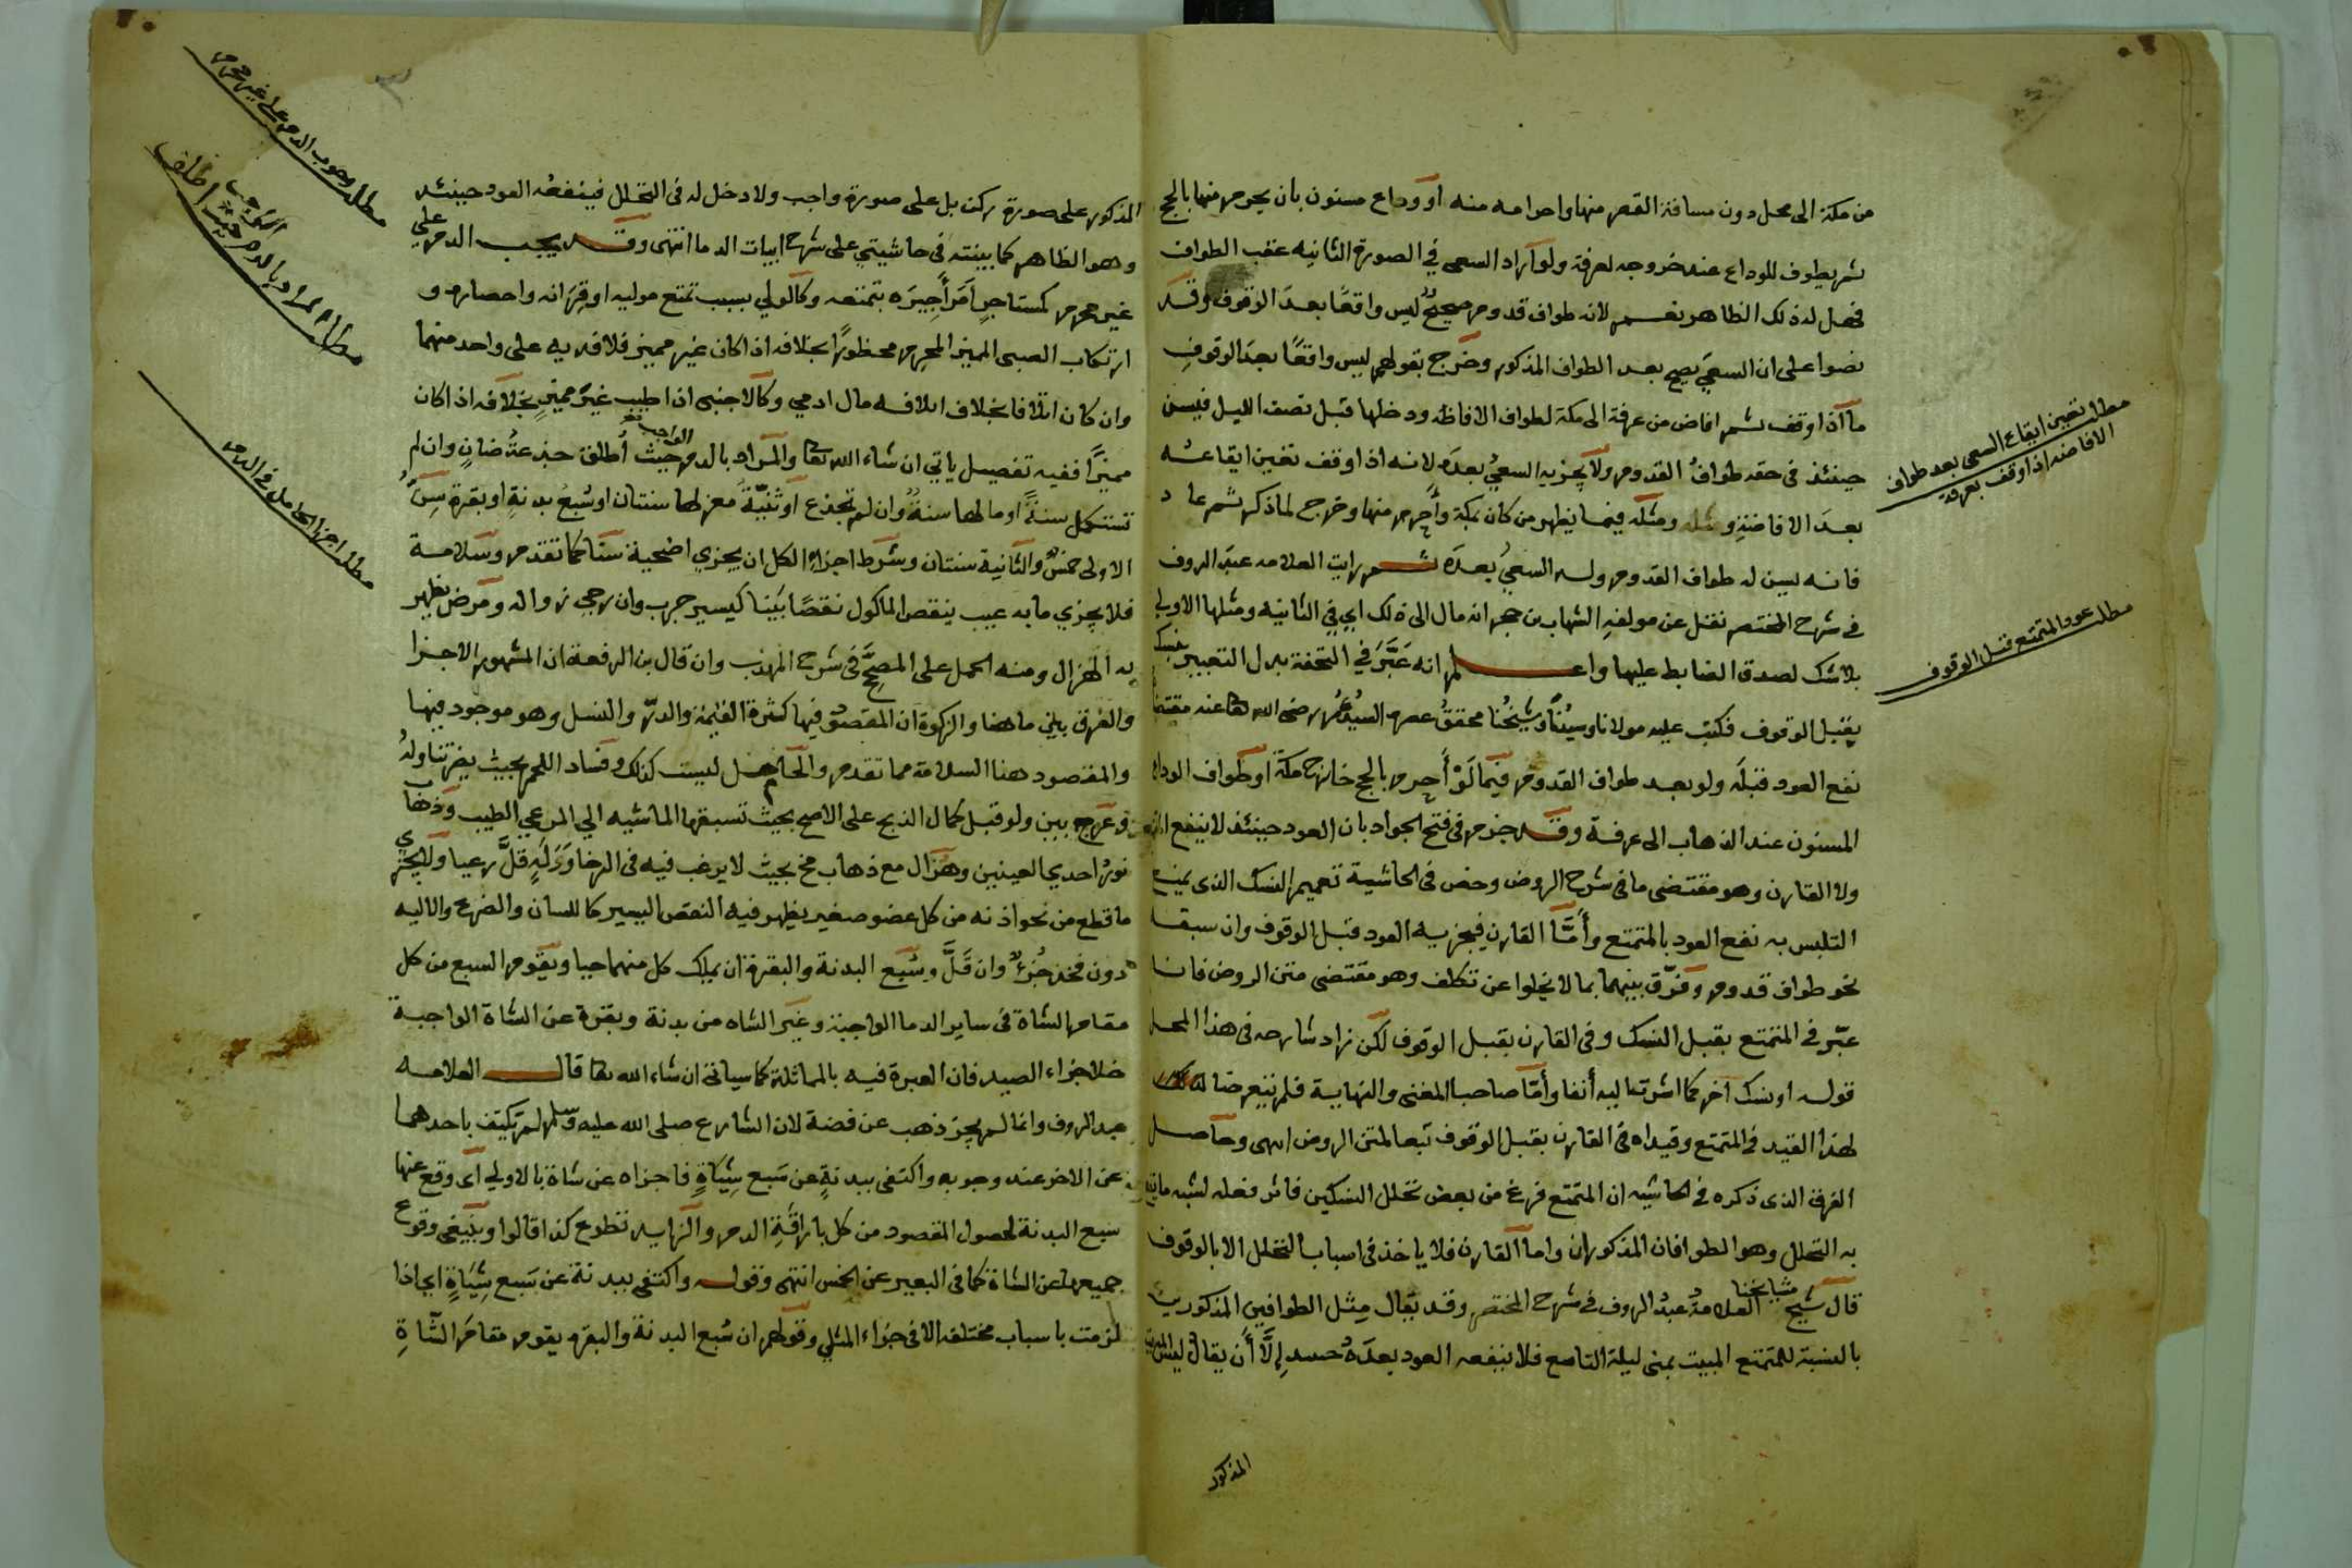 من مكة الى محل دون مسافة القصر منها واحرامه منه او وداع مسنون بان يحرم منها بالحج
ثم يطوف للوداع عند خروجه لعرفة ولو اراد السعى في الصورة الثانيه عقب الطواف
فهل له ذلك الظاهر نعم لانه طواف قدوم صحيح ليس واقعًا بعد الوقوف وقد
نصوا على ان السعي يصح بعد الطواف المذكور وخرج بقولهم ليس واقعًا بعد الوقوف
ما اذا وقف ثم افاض من عرفة الى مكة لطواف الافاظة ودخلها قبل نصف الليل فيسن
حينئذ في حقه طواف القدوم ولا يجزيه السعيُ بعدَه لانه اذا وقف تعين ايقاعه
بعدَ الافاضةِ ومثله فيما يظهر من كان بمكة وأحرم منها وخرج لما ذكر ثم عاد
فانه يسن له طواف القدوم وله السعيُ بعدَه ثم رايت العلامه عبد الروف
في شرح المختصر نقل عن مولفهِ الشهاب بن حجر انه مال الى ذلك اي في الثانيه ومثلها الاولى
بلا شك لصدق الضابط عليها واعلم انه عَبَّرَ في التحفة بدل التعبير بنسك
بقبل الوقوف فكتب عليه مولانا وسيدُنا وشيخُنا محققُ عصره السيدُ عُمر رضى الله تعا عنه مقتضا
نفع العود قبلَه ولو بعد طواف القدوم فيما لَوْ أَحرم بالحج خارج مكة او طواف الوداع
المسنون عند الذهاب الى عرفة وقد جزم في فتح الجواد بان العود حينئذ لا ينفع
ولا القارن وهو مقتضى ما في شرح الروض وخص في الحاشية تعميم النسك الذى يمنع
التلبس به نفع العود بالمتمتع وأَمَّا القارن فيجزيه العود قبل الوقوف وان سبقا
نحو طواف قدوم وفرّق بينهما بما لا يخلوا عن تكلف وهو مقتضى متن الروض فانا
عبّر في المتمتع بقبل النسك وفي القارن بقبل الوقوف لكن زاد شارحه في هذا المحل
قوله او نسك آخر كما اشرت اليه أنفا وأمّا صاحبا المغنى والنهاية فلم يتعرضا لذلك
لهذا القيد في المتمتع وقيداه في القارن بقبل الوقوف تبعا لمتن الروض انتهى وحاصل
الفرق الذى ذكره في الحاشيه ان المتمتع فرغ من بعض تحلل النسكين فاثر فعله لشبه ما
به التحلل وهو الطوافان المذكوران واما القارن فلا ياخذ في اسباب التحلل الا بالوقوف
قال شيخ مشايخنا العلامةُ عبدُ الروف في شرح المختصر وقد يقال مِثل الطوافين المذكورين
بالنسبة للمتمتع المبيت بمنى ليلة التاسع فلا ينفعه العود بعدَهُ إِلَّا أَن يقال ليس
المذكور
مطلب تعين ايقاع السعى بعد طواف
الافاضه اذا وقف بعرفة
مطلب عود المتمتع قبل الوقوف
المذكور على صورة ركن بل على صورة واجب ولا دخل له في التحلل فينفعُه العود حينئذ
وهو الظاهر كما بينته في حاشيتي على شرح ابيات الدما انتهى وقد يجب الدم على
غير محرم كمستاجرٍ اَمَرَ أَجِيرَه بتمتعه وكالولي بسبب تمتع موليه او قِرَانه واحصاره و
ارتكاب الصبى المميز المحرم محظورًا بخلافه اذا كان غير مميز فلا فديه على واحد منهما
وان كان اتلافا بخلاف اتلافه مال ادمي وكالاجنبى اذا طيب غيرَ مميزٍ بخلافه اذا كان
مميزًا ففيه تفصيل ياتي ان شاء الله تعا والمراد بالدم الواجب حيث أُطلق جذعةُ ضانٍ وان لم
تستكمل سنةً او ما لها سنةٌ وان لم تجذع او ثنيّةُ معز لها سنتان او سُبعُ بدنةٍ او بقرة سِنُّ
الاولى خمسٌ والثانية سنتان وشرط اجزاءِ الكل ان يجزي اضحية سنًا كما تقدم وسلامة
فلا يجزي ما به عيب ينقص الماكول نقصًا بَيِّنا كيسير جرب وان رجي زواله ومرض يظهر
به الهزال ومنه الحمل على المصحَّح في شرح المهذب وان قال بن الرفعة ان المشهور الاجزا
والفرق بيني ما هنا والزكوة ان المقصود فيها كثرة القيمة والدرّ والنسل وهو موجود فيها
والمقصود هنا السلامة مما تقدم والحامل ليست كذلك وفساد اللحم بحيث يضر تناوله
وعَرج بين ولو قبل كمال الذبح على الاصح بحيث تسبقها الماشيه الي المرعي الطيب وذهاب
نورُ احدي العينين وهُزال مع ذهاب مخ بحيث لا يرغب فيه في الرخا وَوَلَهٍ قلَّ رعيا ولا يجزي
ما قطع من نحو اذنه من كل عضو صغير يظهر فيه النقص اليسير كاللسان والضرع والاليه
دون فخذ جُزءٌ وان قَلَّ وسُبع البدنة والبقرة ان يملك كل منهما حيا ويقوم السبع من كل
مقام الشاة في ساير الدما الواجبة وغير الشاه من بدنة وبقرة عن الشاة الواجبة
خلا جزاء الصيد فان العبرة فيه بالمماثلة كما سياتي ان شاء الله تعا قال العلامه
عبد الروف وانما لم يجز ذهب عن فضة لان الشارع صلى الله عليه وسلم لم يكتف باحدهما
عن الاخر عند وجوبه واكتفى ببدنةٍ عن سَبع شِيَاةٍ فاجزاه عن شاة بالاولي اى وقع عنها
سبع البدنة لحصول المقصود من كل باراقةِ الدم والزايد تطوع كذا قالوا وينبغى وقوع
جميعها عن الشاة كما في البعير عن الخمس انتهى وقوله واكتفى ببدنة عن سَبع شِيَاةٍ اي اذا
لزمت باسباب مختلفه الا في جزاء المثلي وقولهم ان سُبع البدنة والبقره يقوم مقام الشاةِ
مطلب وجوب الدم على غير محرم
مطلب المراد بالدم الواجب حيث اطلق
مطلب اجزا الحامل في الدم